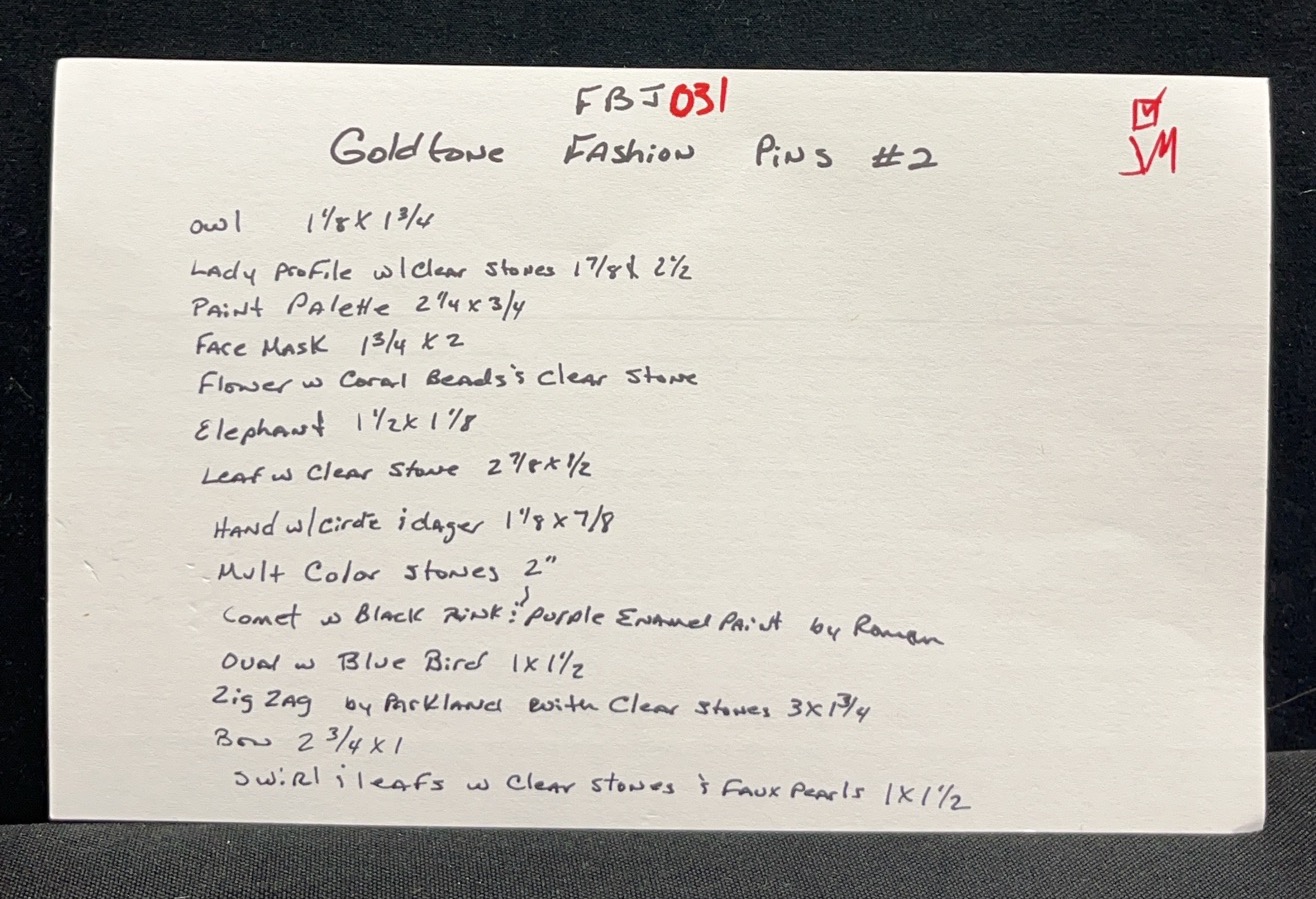 FBJ031
Goldtone Fashion Pins #2
☑
VM
owl 1 1/8 X 1 3/4
Lady Profile w/Clear Stones 1 7/8 X 2 1/2
Paint Palette 2 1/4 x 3/4
Face Mask 1 3/4 X 2
Flower w Coral Beads & Clear Stone
Elephant 1 1/2 X 1 1/8
Leaf w Clear Stone 2 7/8 x 1/2
Hand w/circle & dager 1 1/8 X 7/8
Mult Color Stones 2"
Comet w Black Pink & Purple Enamel Paint by Roman
Oval w Blue Bird 1 X 1 1/2
Zig Zag by Parkland with Clear Stones 3 X 1 3/4
Bow 2 3/4 X 1
Swirl & leafs w Clear Stones & Faux Pearls 1 X 1 1/2